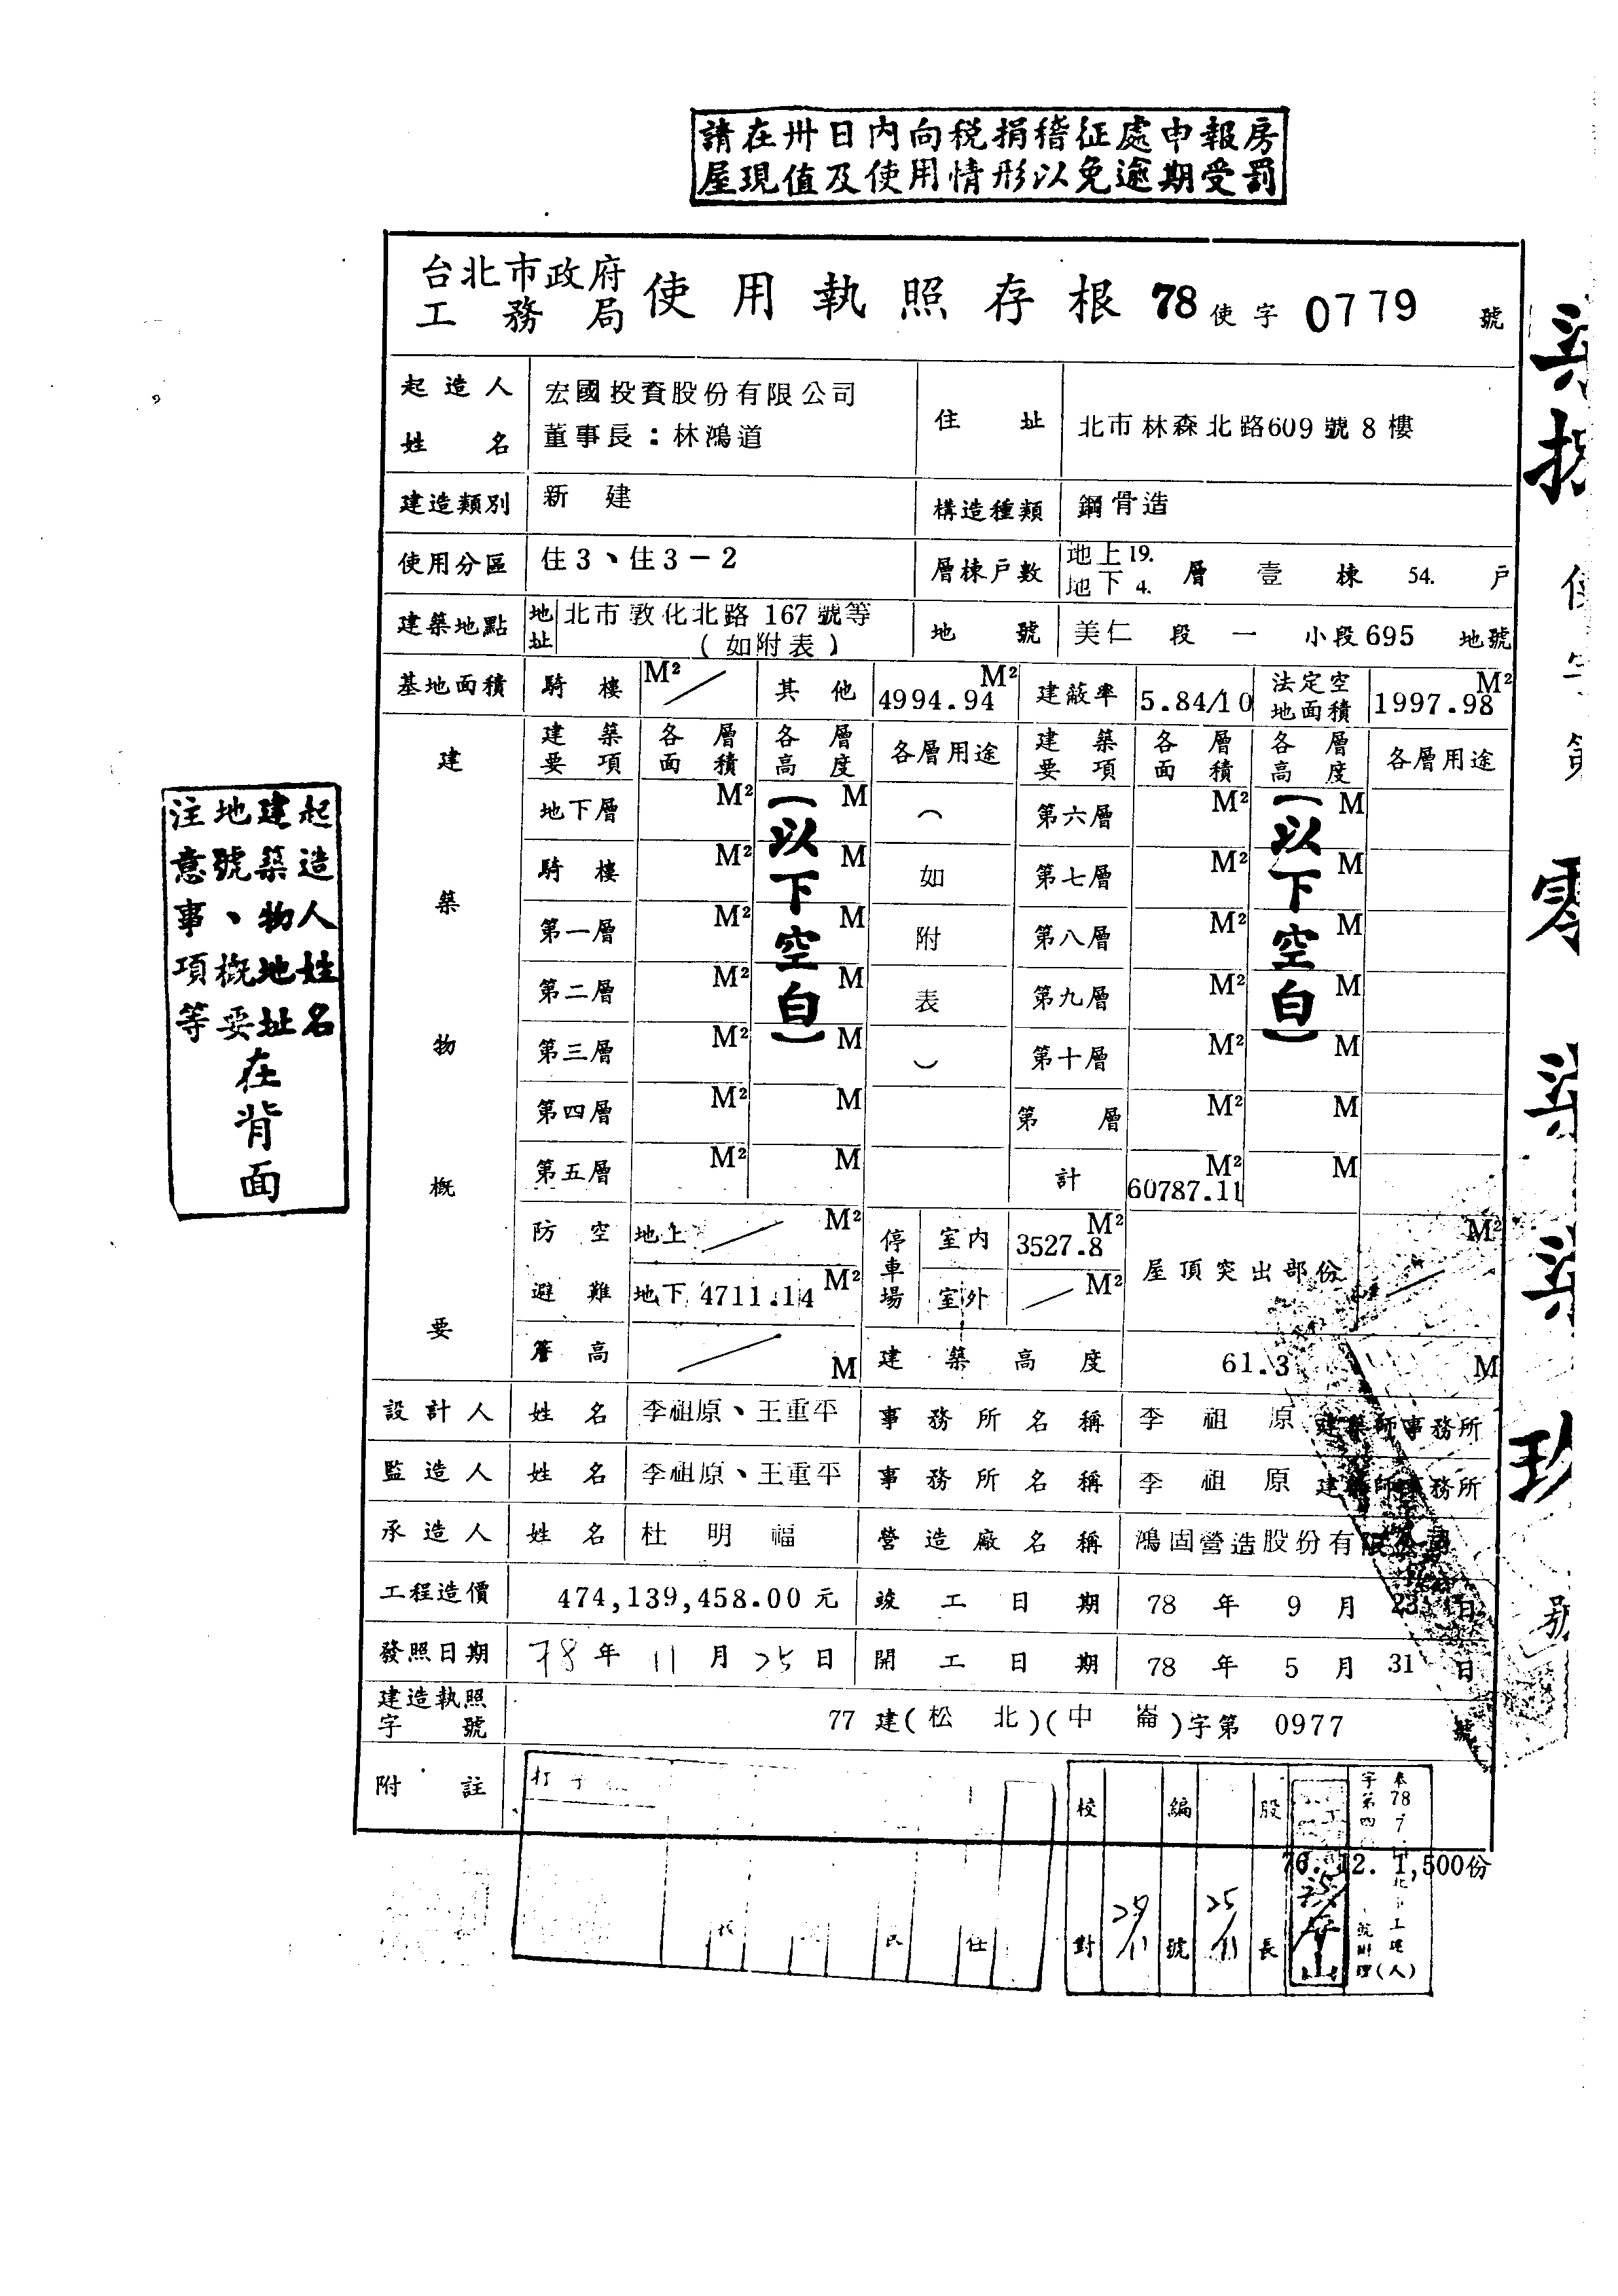 請在卅日內向稅捐稽征處申報房
屋現值及使用情形以免逾期受罰
台北市政府
工務局
使用執照存根 78 使字 0779 號
起造人
姓名
宏國投資股份有限公司
董事長：林鴻道
住址
北市林森北路609號8樓
建造類別 新建 構造種類 鋼骨造
使用分區 住3、住3-2 層棟戶數 地上19. 地下4. 層 壹 棟 54. 戶
建築地點 地址 北市敦化北路167號等
(如附表)
地號 美仁 段 一 小段695 地號
基地面積 騎樓 M² ／ 其他 4994.94 M² 建蔽率 5.84/10 法定空地面積 1997.98 M²
建築物概要
建築要項 各層面積 各層高度 各層用途 建築要項 各層面積 各層高度 各層用途
地下層 M² M 第六層 M² M
騎樓 M² M 第七層 M² M
第一層 M² M 第八層 M² M
第二層 M² M 第九層 M² M
第三層 M² M 第十層 M² M
第四層 M² M 第 層 M² M
第五層 M² M 計 60787.11 M² M
(以下空白)
(如附表)
(以下空白)
防空避難 地上 ／ M² 停車場 室內 3527.8 M² 屋頂突出部份 ／ M²
地下 4711.14 M² 室外 ／ M²
簷高 ／ M 建築高度 61.3 M
設計人 姓名 李祖原、王重平 事務所名稱 李祖原建築師事務所
監造人 姓名 李祖原、王重平 事務所名稱 李祖原建築師事務所
承造人 姓名 杜明福 營造廠名稱 鴻固營造股份有限公司
工程造價 474,139,458.00元 竣工日期 78年9月23日
發照日期 78年11月25日 開工日期 78年5月31日
建造執照字號 77建(松北)(中崙)字第 0977 號
附註
校對
編號 25/11
股長
76.12.1,500份
起造人姓名
建築物地址
地號、概要
注意事項等
在背面